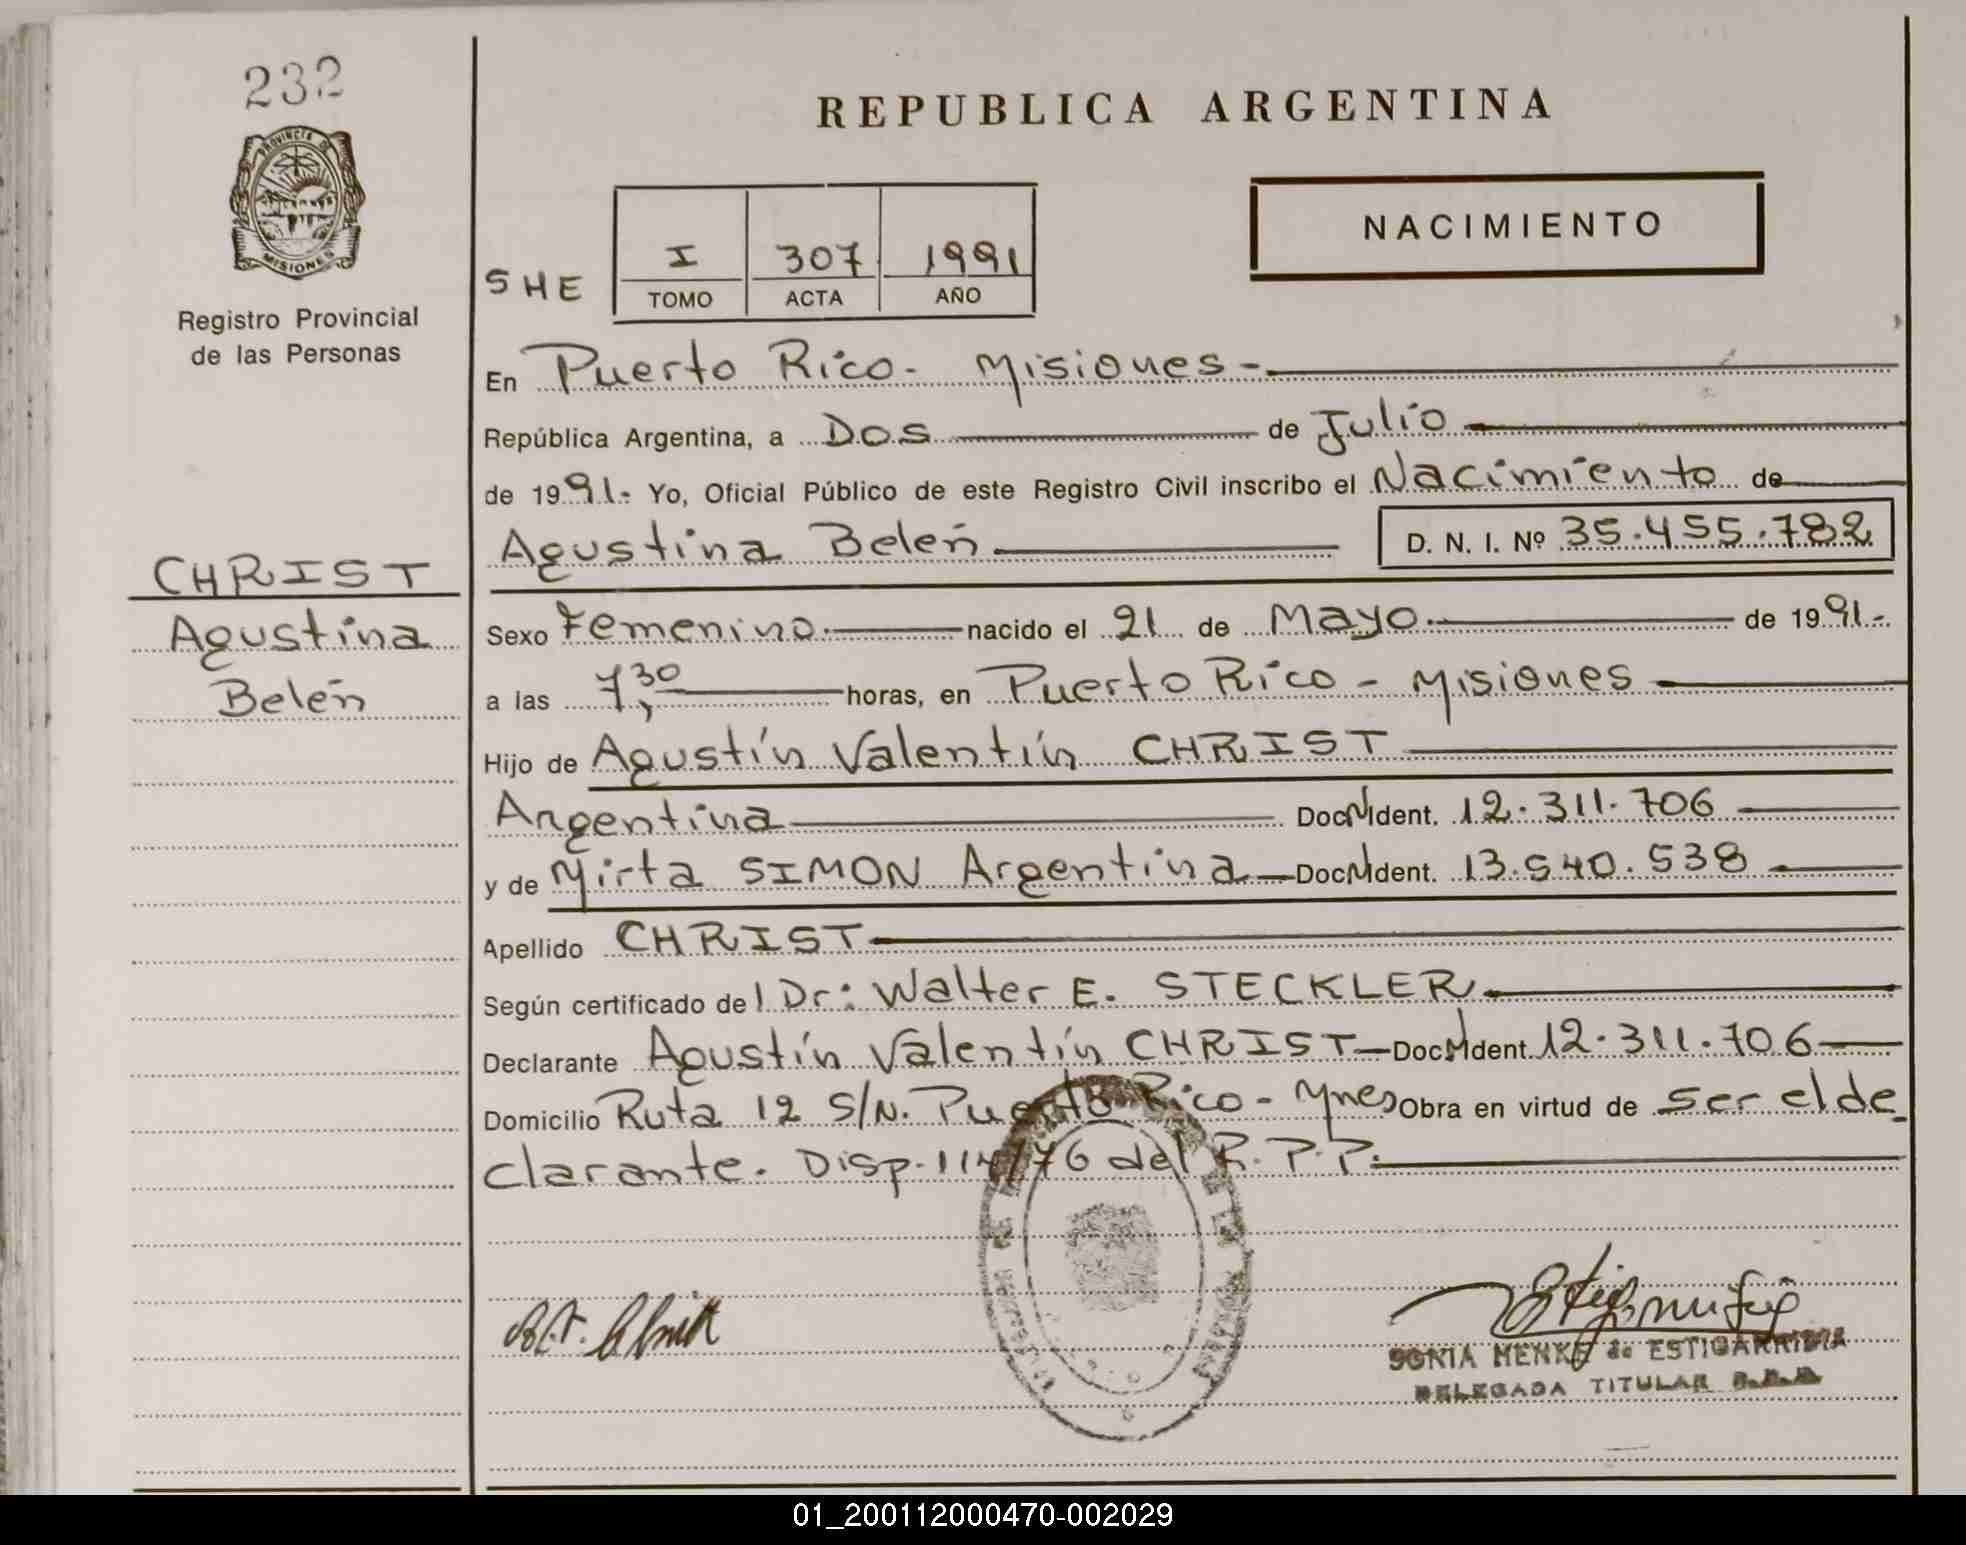 232
PROVINCIA DE
MISIONES
Registro Provincial
de las Personas
CHRIST
Agustina
Belén
REPUBLICA ARGENTINA
NACIMIENTO
SHE
I 307 1991
TOMO ACTA AÑO
En Puerto Rico - Misiones -
República Argentina, a Dos de Julio
de 1991.- Yo, Oficial Público de este Registro Civil inscribo el Nacimiento de
Agustina Belén D. N. I. Nº 35.455.782
Sexo Femenino. nacido el 21 de Mayo. de 1991.-
a las 7,30 horas, en Puerto Rico - Misiones
Hijo de Agustín Valentín CHRIST
Argentina Doc.N.Ident. 12.311.706
y de Mirta SIMON Argentina Doc.N.Ident. 13.540.538
Apellido CHRIST
Según certificado del Dr: Walter E. STECKLER
Declarante Agustín Valentín CHRIST Doc.N.Ident. 12.311.706
Domicilio Ruta 12 S/N. Puerto Rico - Mnes Obra en virtud de ser el de
clarante. Disp. 114/76 del R.P.P.
SONIA MENKE de ESTIGARRIBIA
DELEGADA TITULAR
01_200112000470-002029